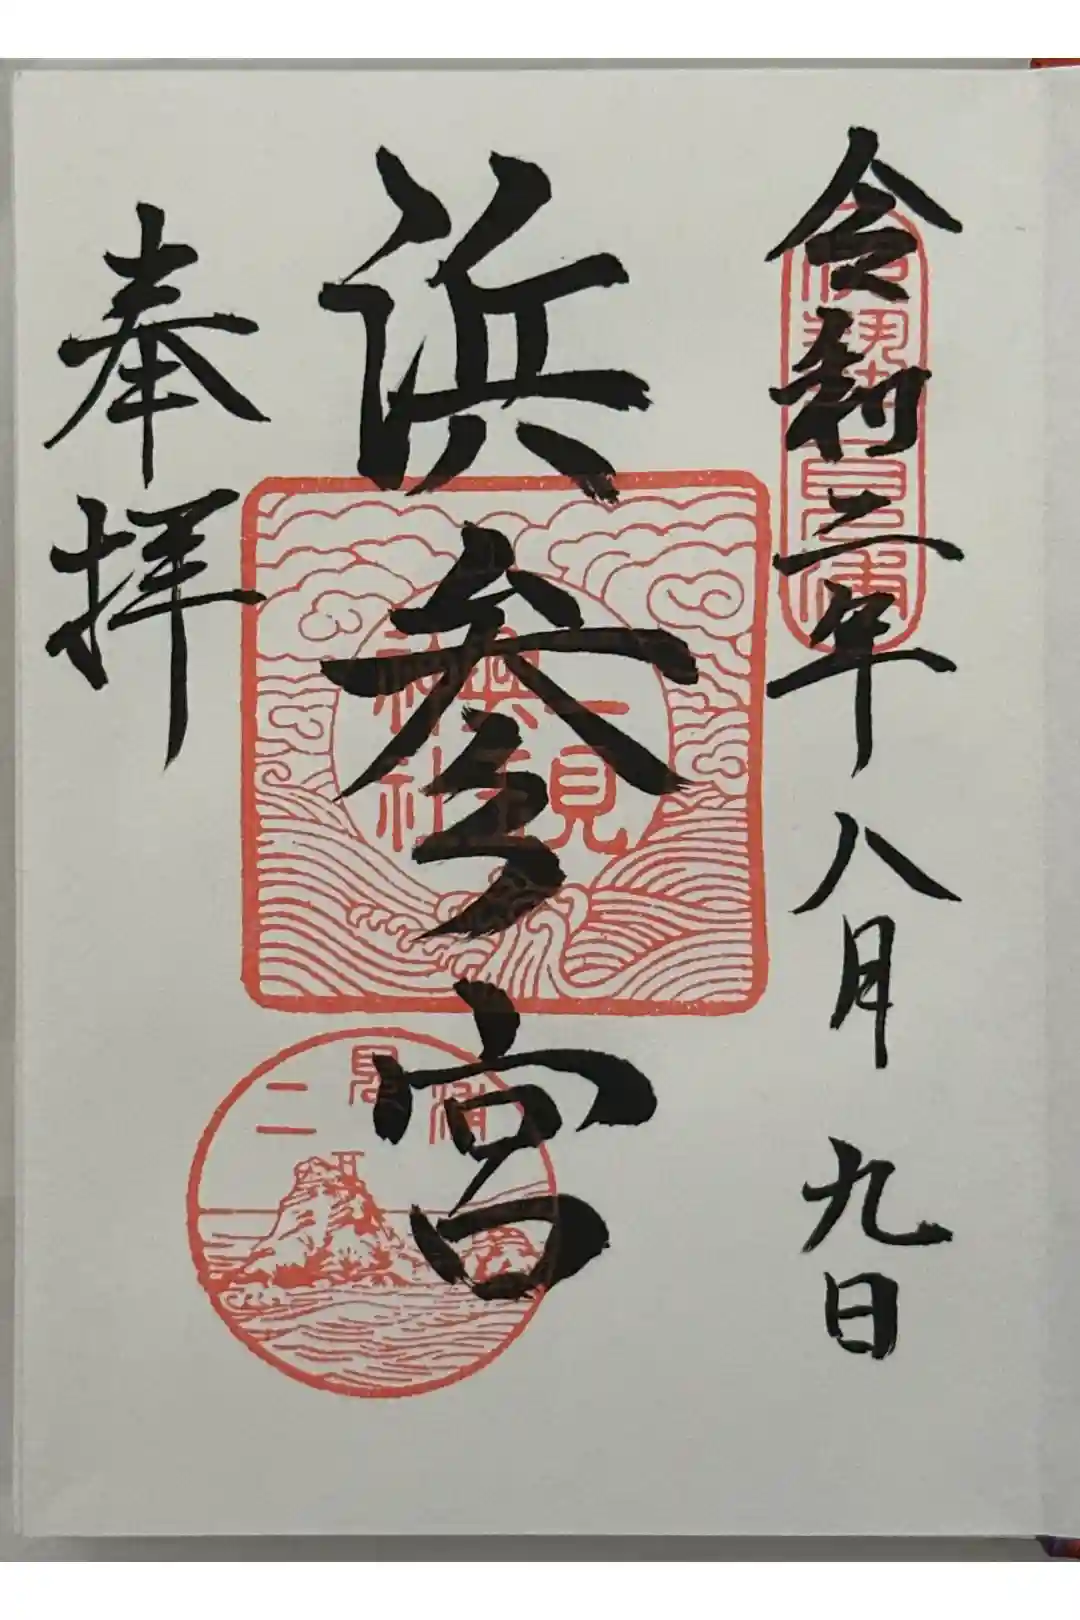 令和二年八月九日
浜参宮
奉拝
二見
興玉
神社
二見浦